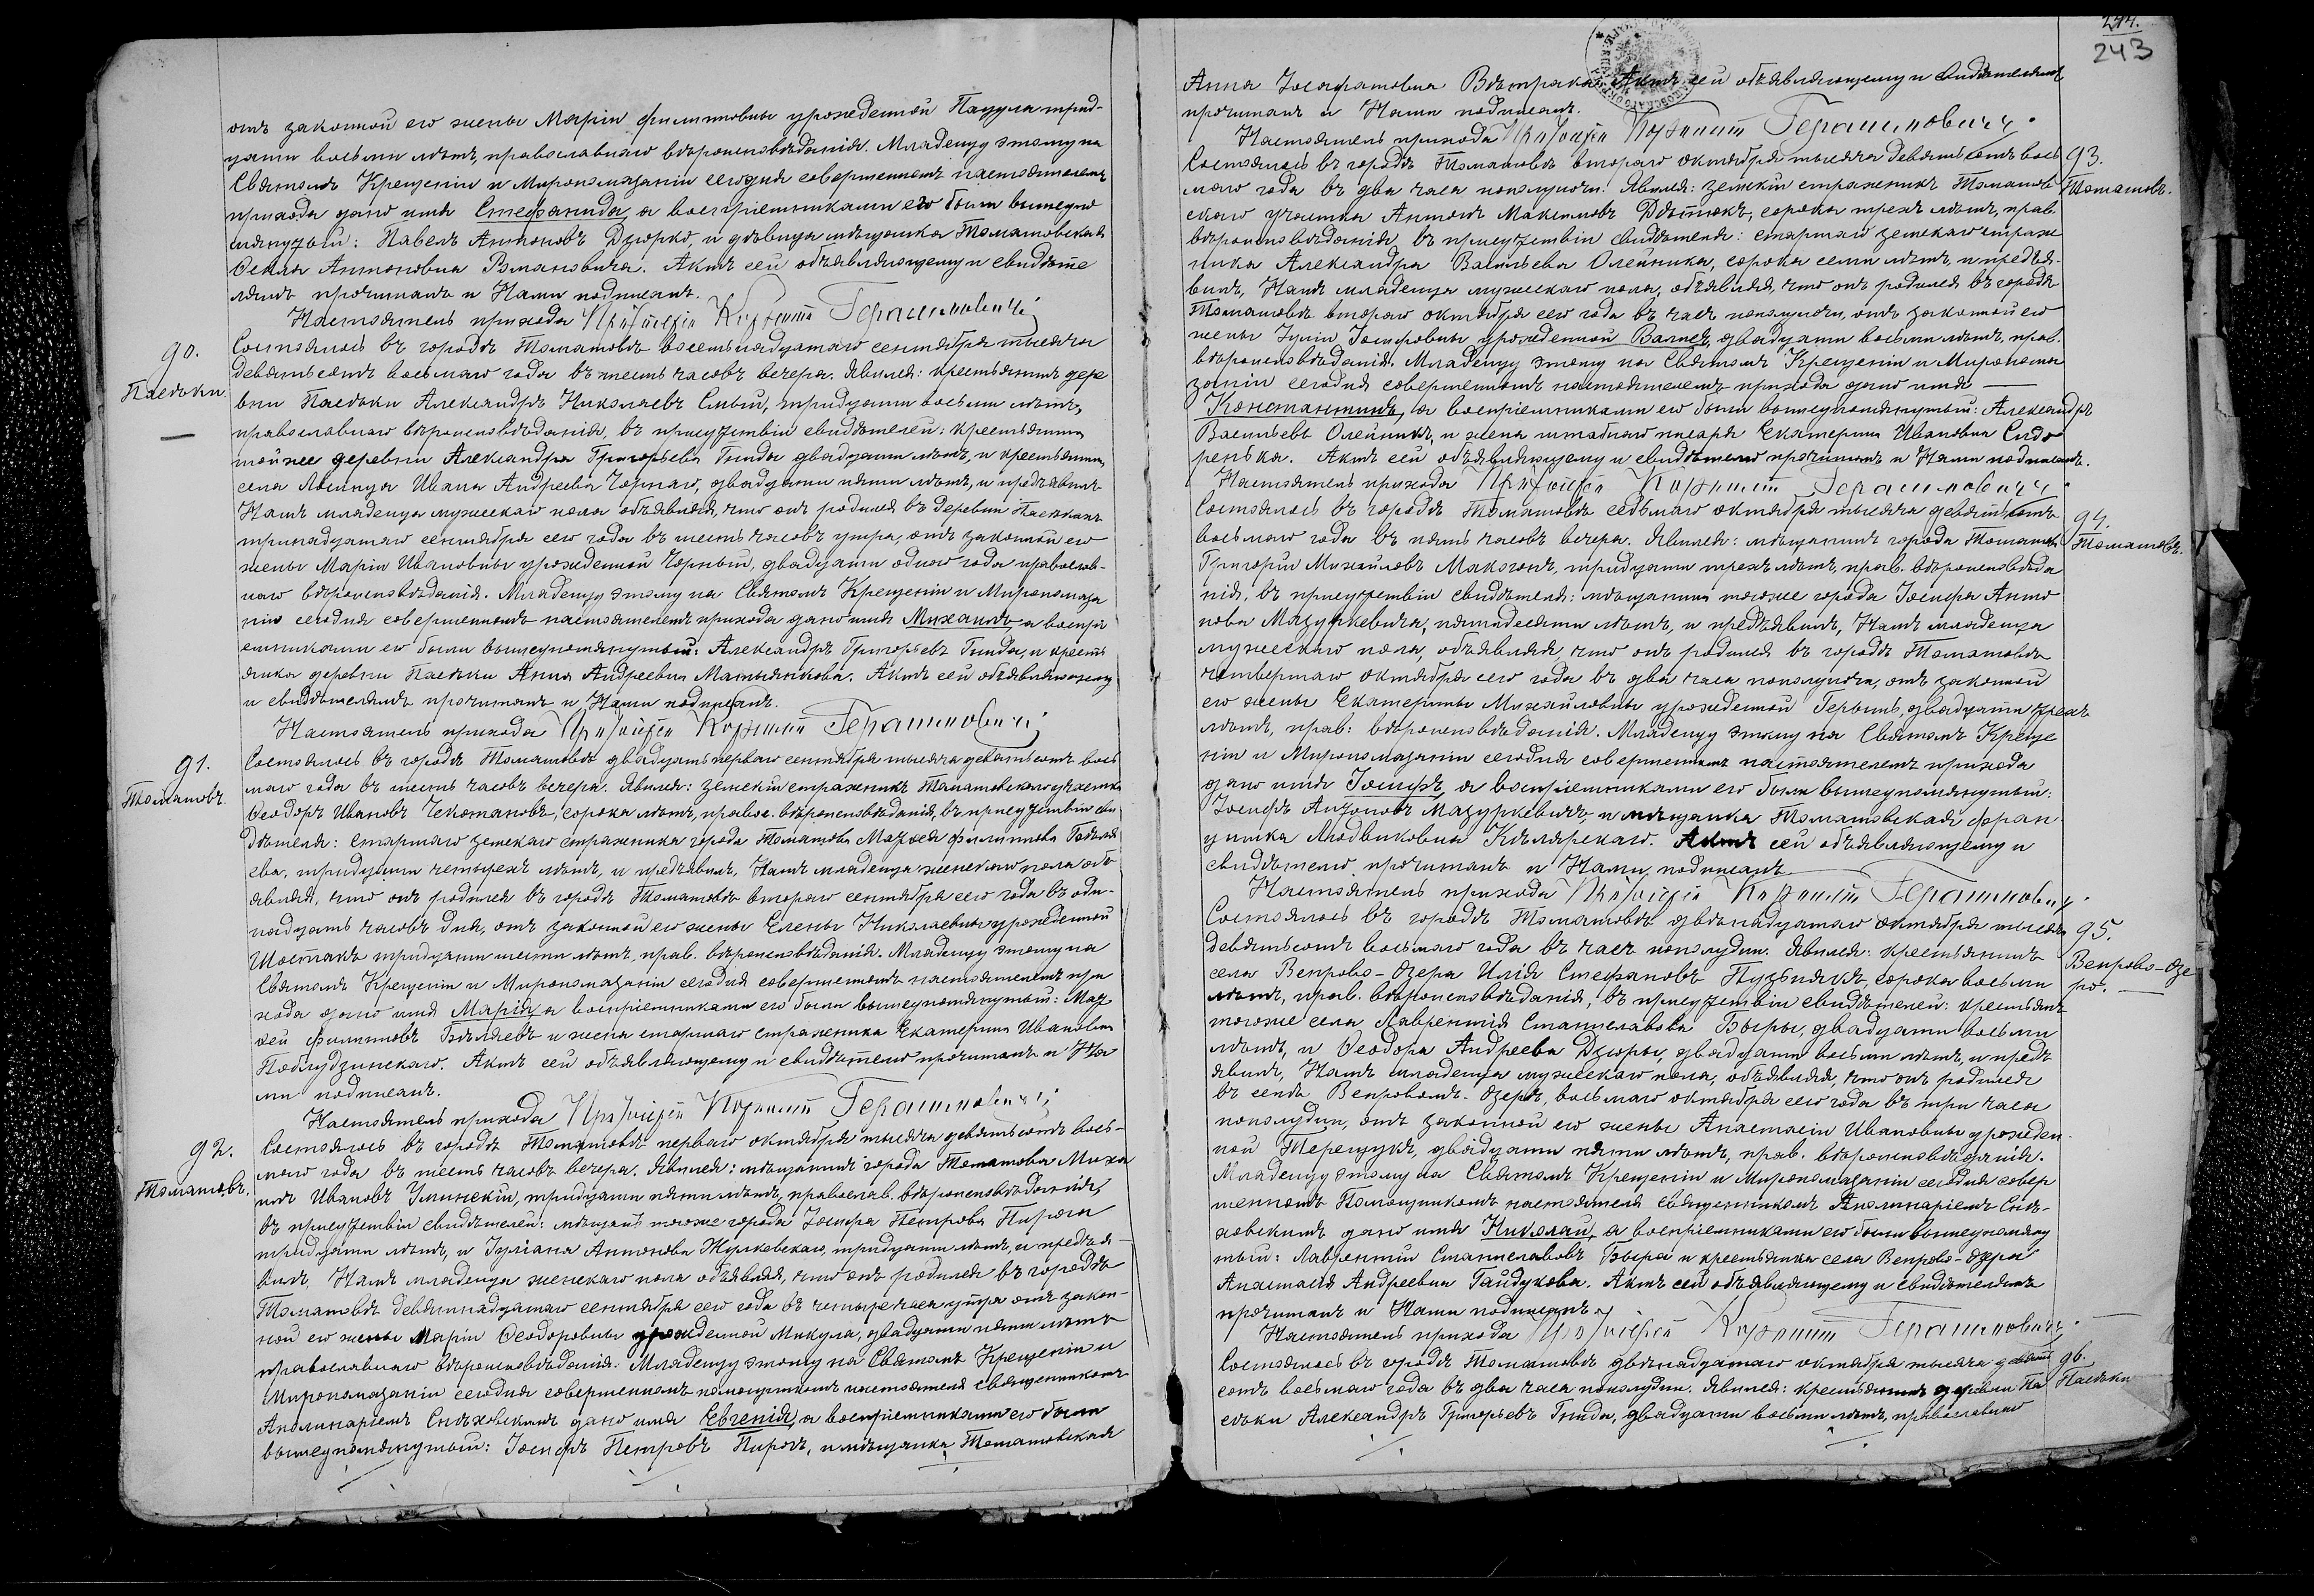 отъ законной его жены Маріи Филипповны урожденной Пацула трид-
цати восьми лѣтъ, православнаго вѣроисповѣданія. Младенцу этому на
Святомъ Крещеніи и Миропомазаніи сегодня совершенномъ настоятелемъ
прихода дано имя Стефанида, а воспріемниками его были вышеупо
мянутый: Павелъ Антоновъ Дзюрко, и дѣвица мѣщанка Томашовская
Ѳекла Антоновна Романовича. Актъ сей объявляющему и свидѣте
лямъ прочитанъ и Нами подписанъ.
Настоятель прихода Протоіерей Корнилій Герашимовичъ
90.
Пасѣки.
Состоялось въ городѣ Томашовѣ восемьнадцатаго сентября тысяча
девятьсотъ восьмаго года въ шесть часовъ вечера. Явился: крестьянинъ дере
вни Пасѣки Александръ Николаевъ Смый, тридцати восьми лѣтъ,
православнаго вѣроисповѣданія, въ присутствіи свидѣтелей: крестьянина
той же деревни Александра Григорьева Гнида двадцати лѣтъ, и крестьянина
села Лосинца Ивана Андреева Чорнаго, двадцати пяти лѣтъ, и предъявилъ
Намъ младенца мужескаго пола объявляя, что онъ родился въ деревни Пасѣкахъ
тринадцатаго сентября сего года въ шесть часовъ утра, отъ законной его
жены Маріи Ивановны урожденной Чорный, двадцати одного года православ-
наго вѣроисповѣданія. Младенцу этому на Святомъ Крещеніи и Миропомаза
ніи сегодня совершенномъ настоятелемъ прихода дано имя Михаилъ, а воспрі
емниками его были вышеупомянутый: Александръ Григорьевъ Гнида, и кресть
янка деревни Пасѣки Анна Андреевна Матьяшкова. Актъ сей объявляющему
и свидѣтелямъ прочитанъ и Нами подписанъ.
Настоятель прихода Протоіерей Корнилій Герашимовичъ
91.
Томашовъ.
Состоялось въ городѣ Томашовѣ двадцать перваго сентября тысяча девятьсотъ вось
маго года въ шесть часовъ вечера. Явился: земскій стражникъ Томашовскаго участка
Ѳеодоръ Ивановъ Чекомановъ, сорока лѣтъ, правос. вѣроисповѣданія, въ присутствіи сви
дѣтеля: старшаго земскаго стражника города Томашова Моѵсея Филиппова Бѣляя
ева, тридцати четырехъ лѣтъ, и предъявилъ, Намъ младенца женскаго пола объ
являя, что онъ родился въ городѣ Томашовѣ втораго сентября сего года въ оди-
надцать часовъ дня, отъ законной его жены Елены Николаевны урожденной
Шостакъ тридцати шести лѣтъ, прав. вѣроисповѣданія. Младенцу этому на
Святомъ Крещеніи и Миропомазаніи сегодня совершенномъ настоятелемъ при
хода дано имя Марія, а воспріемниками его были вышеупомянутый:
Филипповъ Бѣляевъ и жена старшаго стражника Екатерина Ивановна
Поблудзинскаго. Актъ сей объявляющему и свидѣтелю прочитанъ и На
ми подписанъ.
Настоятель прихода Протоіерей Корнилій Герашимовичъ
92.
Томашовъ.
Состоялось въ городѣ Томашовѣ перваго октября тысяча девятьсотъ вось-
маго года въ шесть часовъ вечера. Явился: мѣщанинъ города Томашова Миха
илъ Ивановъ Улинскій, тридцати пяти лѣтъ, православ. вѣроисповѣданія,
въ присутствіи свидѣтелей: мѣщанъ того же города Іосифа Петрова Пирога
тридцати лѣтъ, и Іуліана Антонова Жулкевскаго, тридцати лѣтъ, и предъя-
вилъ, Намъ младенца женскаго пола объявляя, что онъ родился въ городѣ
Томашовѣ девятнадцатаго сентября сего года въ четыре часа утра отъ закон-
ной его жены Маріи Ѳеодоровны урожденной Микула, двадцати пяти лѣтъ
православнаго вѣроисповѣданія. Младенцу этому на Святомъ Крещеніи и
Миропомазаніи сегодня совершенномъ помощникомъ настоятеля священникомъ
Аполинаріемъ Снѣховскимъ дано имя Евгенія, а воспріемниками его были
вышеупомянутый: Іосифъ Петровъ Пирогъ, и мѣщанка Томашовская
244.
243
Анна Іосафатовна Вѣтрака. Актъ сей объявляющему и свидѣтелямъ
прочитанъ и Нами подписанъ.
Настоятель прихода Протоіерей Корнилій Герашимовичъ
93.
Томашовъ.
Состоялось въ городѣ Томашовѣ втораго октября тысяча девятьсотъ вось
маго года въ два часа пополуночи. Явился: земскій стражникъ Томашов
скаго участка Антонъ Максимовъ Дѣтюкъ, сорока трехъ лѣтъ, прав.
вѣроисповѣданія, въ присутствіи свидѣтеля: старшаго земскаго страж
ника Александра Васильева Олейника, сорока семи лѣтъ, и предъя-
вилъ, Намъ младенца мужескаго пола, объявляя, что онъ родился въ городѣ
Томашовѣ втораго октября сего года въ часъ пополуночи, отъ законной его
жены Іуліи Іосифовны урожденной Валнес, двадцати восьми лѣтъ, прав.
вѣроисповѣданія. Младенцу этому на Святомъ Крещеніи и Миропома
заніи сегодня совершенномъ настоятелемъ прихода дано имя —
Константинъ, а воспріемниками его были вышеупомянутый: Александръ
Васильевъ Олейникъ, и жена штабнаго писаря Екатерина Ивановна Сидо
ренька. Актъ сей объявляющему и свидѣтелю прочитанъ и Нами подписанъ.
Настоятель прихода Протоіерей Корнилій Герашимовичъ
94.
Томашовъ.
Состоялось въ городѣ Томашовѣ седьмаго октября тысяча девятьсотъ
восьмаго года въ пять часовъ вечера. Явился: мѣщанинъ города Томашова
Григорій Михайловъ Макогонъ, тридцати трехъ лѣтъ, прав. вѣроисповѣда
нія, въ присутствіи свидѣтеля: мѣщанина того же города Іосифа Анто
нова Мазуркевича, пятидесяти лѣтъ, и предъявилъ, Намъ младенца
мужескаго пола, объявляя, что онъ родился въ городѣ Томашовѣ
четвертаго октября сего года въ два часа пополуночи, отъ законной
его жены Екатерины Михайловны урожденной Герынъ, двадцати трехъ
лѣтъ, прав: вѣроисповѣданія. Младенцу этому на Святомъ Креще
ніи и Миропомазаніи сегодня совершенномъ настоятелемъ прихода
дано имя Іосифъ, а воспріемниками его были вышеупомянутый:
Іосифъ Антоновъ Мазуркевичъ, и мѣщанка Томашовская Фран
цишка Людвиковна Кѣлярскаго. Актъ сей объявляющему и
свидѣтелю прочитанъ и Нами подписанъ.
Настоятель прихода Протоіерей Корнилій Герашимовичъ
95.
Вепрово-Озе
ро.
Состоялось въ городѣ Томашовѣ двѣнадцатаго октября тысяча
девятьсотъ восьмаго года въ часъ пополудни. Явился: крестьянинъ
села Вепрово-Озера Илія Стефановъ Пузьнякъ, сорока восьми
лѣтъ, прав. вѣроисповѣданія, въ присутствіи свидѣтелей: крестьянъ
того же села Лаврентія Станиславова Быры, двадцати восьми
лѣтъ, и Ѳеодора Андреева Дзюры, двадцати восьми лѣтъ, и предъ
явилъ, Намъ младенца мужескаго пола, объявляя, что онъ родился
въ селѣ Вепровомъ-Озерѣ, восьмаго октября сего года въ три часа
пополудни, отъ законной его жены Анастасіи Ивановны урожден-
ной Терещукъ, двадцати пяти лѣтъ, прав. вѣроисповѣданія.
Младенцу этому на Святомъ Крещеніи и Миропомазаніи сегодня совер
шенномъ Помощникомъ настоятеля священникомъ Аполинаріемъ Снѣ-
ховскимъ дано имя Николай, а воспріемниками его были вышеупомяну
тый: Лаврентій Станиславовъ Быра и крестьянка села Вепрово-Озера
Анастасія Андреевна Гайдукова. Актъ сей объявляющему и свидѣтелямъ
прочитанъ и Нами подписанъ.
Настоятель прихода Протоіерей Корнилій Герашимовичъ
96.
Пасѣки
Состоялось въ городѣ Томашовѣ двѣнадцатаго октября тысяча девять
сотъ восьмаго года въ два часа пополудни. Явился: крестьянинъ деревни Па
сѣки Александръ Григорьевъ Гнида, двадцати восьми лѣтъ, православнаго